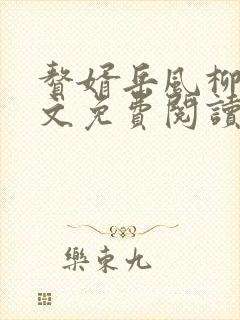 贅婿岳風柳
文免費閱讀
樂東九